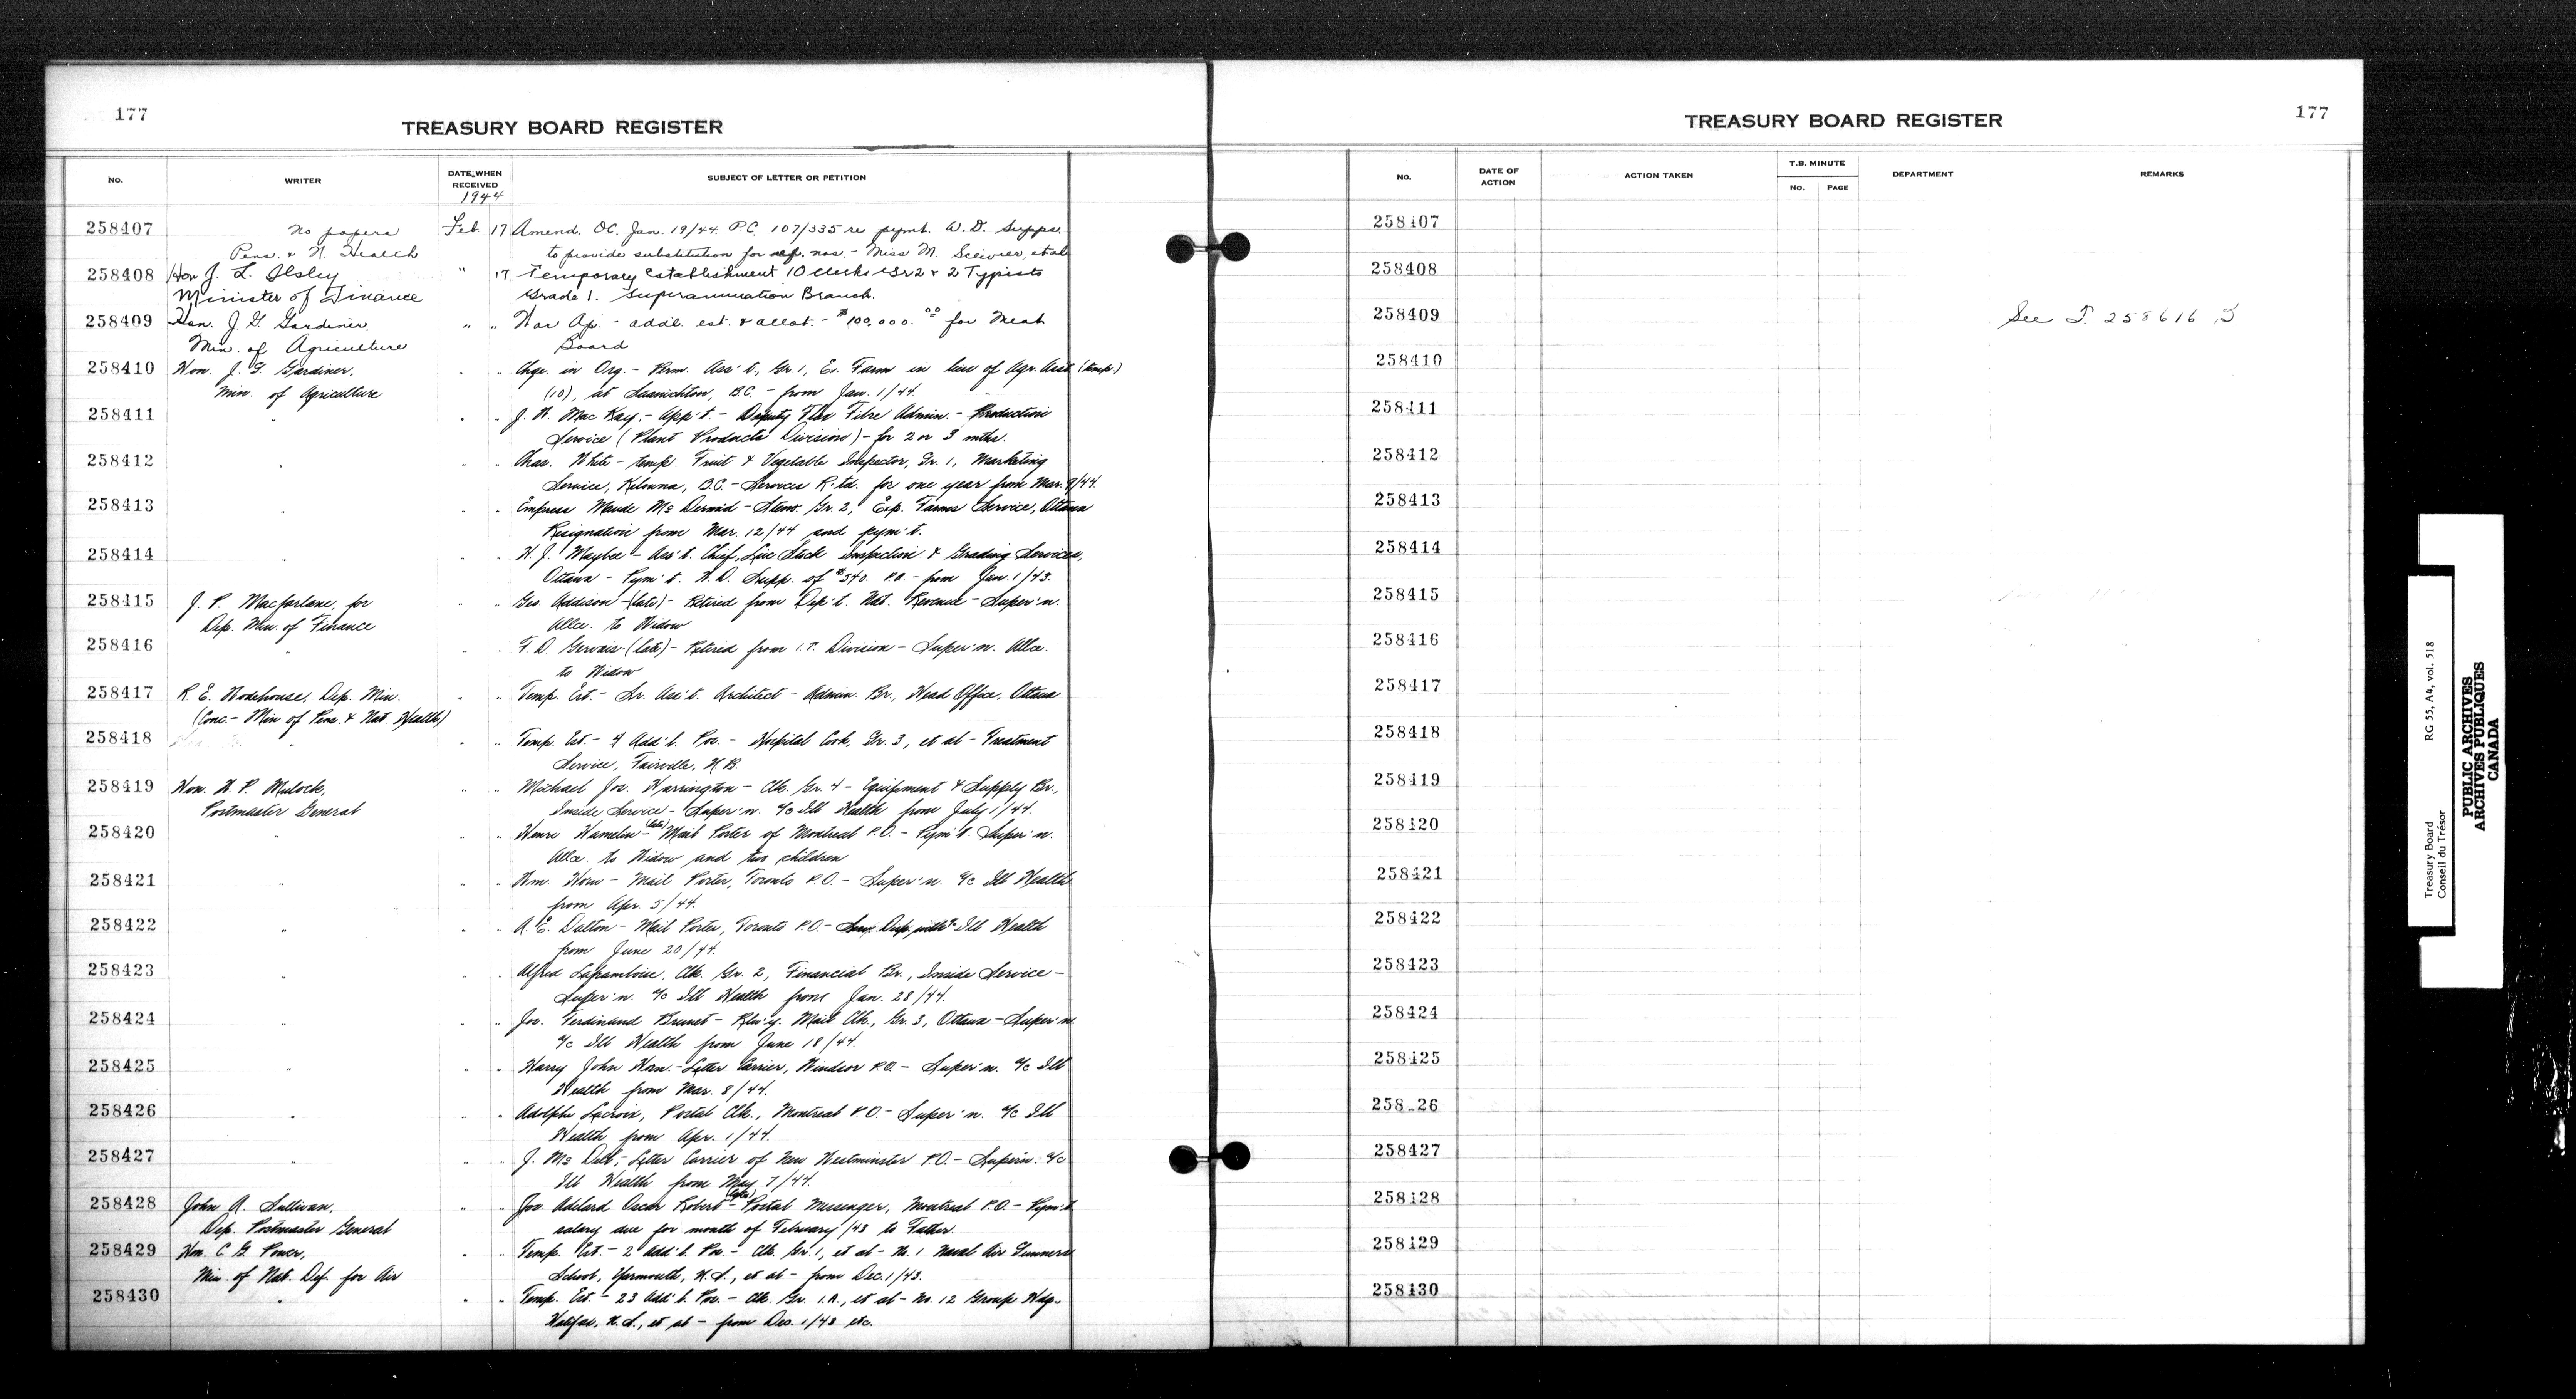 177
TREASURY BOARD REGISTER
No.
WRITER
DATE WHEN RECEIVED
1944
SUBJECT OF LETTER OR PETITION
258407 No papers Feb. 17 Amend. OC. Jan. 19/44. P.C. 107/335 re pymt. W.D. Supps.
Pens. & N. Health to provide substitution for ref. nos. - Miss M. et al
258408 Hon J. L. Ilsley " 17 Temporary Establishment 10 clerks Gr 2 & 2 Typists
Minister of Finance Grade 1. Superannuation Branch.
258409 Hon. J. G. Gardiner, " " War Ap. - addl. est. & allot. - $100,000.00 for Meat
Min. of Agriculture Board
258410 Hon. J. G. Gardiner, " " Chge. in Org. - Perm. Ass't., Gr. 1, Ex. Farm in lieu of Agr. Asst. (temp.)
Min. of Agriculture (10), at Saanichton, B.C. - from Jan. 1/44.
258411 " " " J. W. MacKay - App't. - Deputy Flax Fibre Admin. - Production
Service (Plant Products Division) - for 2 or 3 mths.
258412 " " " Chas. White - temp. Fruit & Vegetable Inspector, Gr. 1, Marketing
Service, Kelowna, B.C. - Services R'td. for one year from Mar. 9/44.
258413 " " " Empress Maude McDermid - Steno. Gr. 2, Exp. Farms Service, Ottawa
Resignation from Mar. 12/44 and pym't.
258414 " " " W. J. Maybee - Ass't. Chief, Live Stock Inspection & Grading Services,
Ottawa - Pym't. W.D. Supp. of $540. P.A. - from Jan. 1/43.
258415 J. P. Macfarlane, for " " Geo. Addison - (late) - Retired from Dep't. Nat. Revenue - Super'n.
Dep. Min. of Finance Allce. to Widow
258416 " " " F. D. Gervais - (late) - Retired from I.T. Division - Super'n. Allce.
to Widow
258417 R. E. Wodehouse, Dep. Min. " " Temp. Est. - Sr. Ass't. Architect - Admin. Br., Head Office, Ottawa
(Conc. - Min. of Pens. & Nat. Health)
258418 " " " Temp. Est. - 4 Add'l. Pos. - Hospital Cook, Gr. 3, et al - Treatment
Service, Fairville, N.B.
258419 Hon. W. P. Mulock, " " Michael Jos. Harrington - Clk. Gr. 4 - Equipment & Supply Br.,
Postmaster General Inside Service - Super'n. a/c Ill Health from July 1/44.
258420 " " " Henri Hamelin - (late) Mail Porter of Montreal P.O. - Pym't. Super'n.
Allce. to Widow and two children
258421 " " " Wm. Horn - Mail Porter, Toronto P.O. - Super'n. a/c Ill Health
from Apr. 5/44.
258422 " " " A. E. Dalton - Mail Porter, Toronto P.O. - Serv. Disp. with - Ill Health
from June 20/44.
258423 " " " Alfred Laframboise, Clk. Gr. 2, Financial Br., Inside Service -
Super'n. a/c Ill Health from Jan. 28/44.
258424 " " " Jos. Ferdinand Brunet - Rlw'y. Mail Clk., Gr. 3, Ottawa - Super'n.
a/c Ill Health from June 18/44.
258425 " " " Harry John Horn - Letter Carrier, Windsor P.O. - Super'n. a/c Ill
Health from Mar. 8/44.
258426 " " " Adolphe Lacroix, Postal Clk., Montreal P.O. - Super'n. a/c Ill
Health from Apr. 1/44.
258427 " " " J. McDell, - Letter Carrier of New Westminster P.O. - Super'n. a/c
Ill Health from May 7/44.
258428 John A. Sullivan, " " Jos. Adelard Oscar Robert - Postal Messenger, Montreal P.O. - Pym't.
Dep. Postmaster General salary due for month of February/43 to Father.
258429 Hon. C. G. Power, " " Temp. Est. - 2 Add'l. Pos. - Clk. Gr. 1, et al - No. 1 Naval Air Gunners
Min. of Nat. Def. for Air School, Yarmouth, N.S., et al - from Dec. 1/43.
258430 " " " Temp. Est. - 23 Add'l. Pos. - Clk. Gr. 1A., et al - No. 12 Group Hdq.
Halifax, N.S., et al - from Dec. 1/43 etc.
177
TREASURY BOARD REGISTER
No.
DATE OF ACTION
ACTION TAKEN
T.B. MINUTE
No.
PAGE
DEPARTMENT
REMARKS
258407
258408
258409 See T. 258616 S
258410
258411
258412
258413
258414
258415
258416
258417
258418
258419
258420
258421
258422
258423
258424
258425
258 26
258427
258428
258429
258430
Treasury Board
Conseil du Trésor
RG 55, A4, vol. 518
PUBLIC ARCHIVES
ARCHIVES PUBLIQUES
CANADA